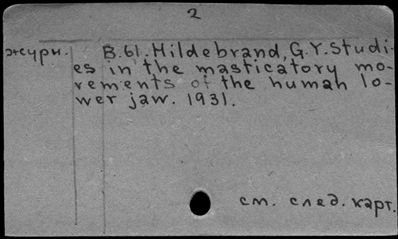 2
журн. B.61. Hildebrand, G.Y. Studi-
es in the masticatory mo-
vements of the human lo-
wer jaw. 1931.
см. след. карт.